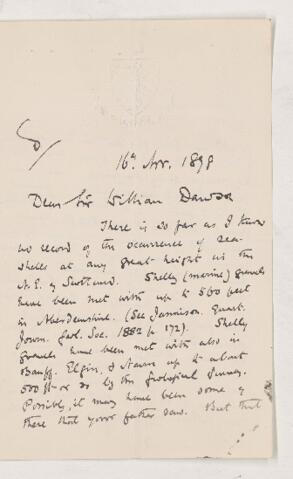 16th Nov. 1898
Dear Sir William Dawson
There is so far as I know
no record of the occurrence of sea-
shells at any great height in the
N.E. of Scotland. Shelly (marine) gravels
have been met with up to 560 feet
in Aberdeenshire. (See Jamieson. Quart.
Journ. Geol. Soc. 1882 p. 172). Shelly
gravels have been met with also in
Banff, Elgin, & Nairn up to about
500 ft or so by the Geological Survey.
Possibly, it may have been some of
these that your father saw. But that